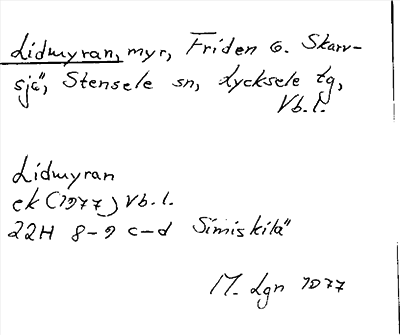 Lidmyran, myr, Friden o. Skarv-
sjö, Stensele sn, Lycksele tg,
Vb.l.
Lidmyran
ek (1977) Vb.l.
22H 8-9 c-d Simiskilä
M. Lgn 1977